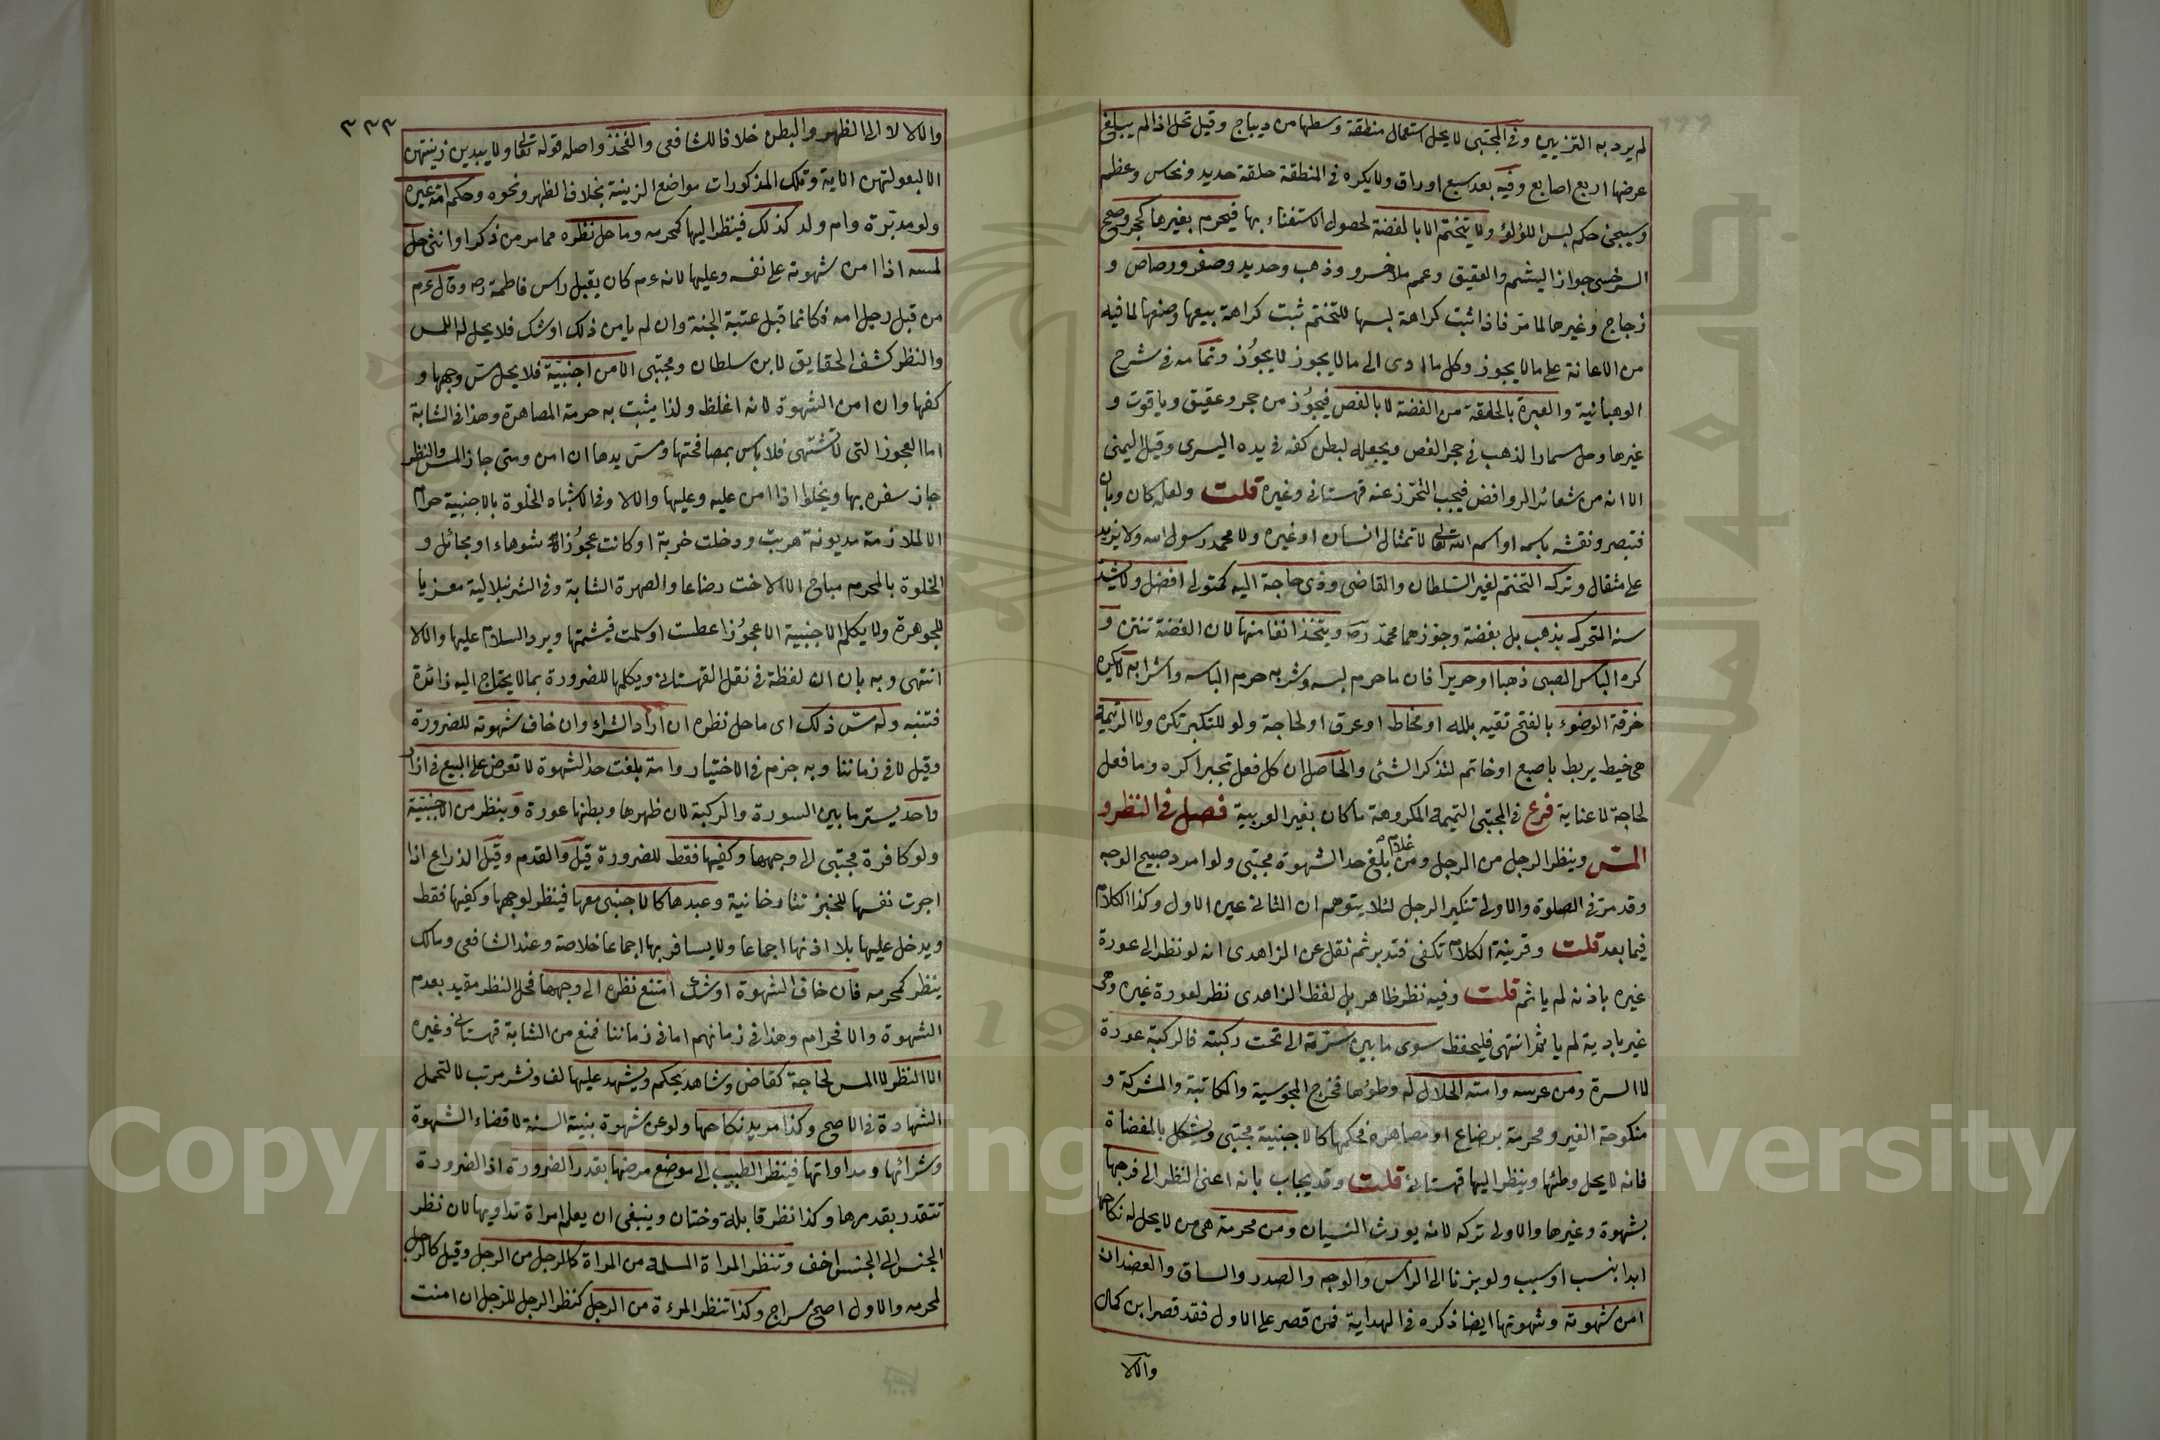 لم يرد به التزيين وفي المجتبى لا يحل استعمال منطقة وسطها من ديباج وقيل تحل اذا لم يبلغ
عرضها اربع اصابع وفيه بعد سبع اوراق ولا يكره في المنطقة حلقة حديد ونحاس وعظم
وسيجئ حكم لبس اللؤلؤ ولا يتختم الا بالفضة لحصول الاستغناء بها فيحرم بغيرها كحجر وصحح
السرخسي جواز اليشم والعقيق وعمم ملا خسرو وذهب وحديد وصفر ورصاص و
زجاج وغيرها لما مر فاذا ثبت كراهة لبسها للتختم ثبت كراهة بيعها وصنعها لما فيه
من الاعانة على ما لا يجوز وكل ما ادى الى ما لا يجوز لا يجوز وتمامه في شرح
الوهبانية والعبرة بالحلقة من الفضة لا بالفص فيجوز من حجر وعقيق وياقوت و
غيرها وحل مسمار الذهب في حجر الفص ويجعله لبطن كفه في يده اليسرى وقيل اليمنى
الا انه من شعائر الروافض فيجب التحرز عنه قهستاني وغيره قلت ولعله كان وبان
فتبصر ونقشه باسمه او اسم الله تعالى لا تمثال انسان او غيره ولا محمد رسول الله ولا يزيد
على مثقال وترك التختم لغير السلطان والقاضي وذي حاجة اليه كمتولي افضل ولا يشد
سنه المتحرك بذهب بل بفضة وجوزهما محمد رح ويتخذ انفا منها لان الفضة تنتن و
كره الباس الصبي ذهبا او حريرا فان ما حرم لبسه وشربه حرم الباسه واشرابه لا يكره
خرقة الوضوء بالفتح تقيه بلله او مخاط او عرق او لحاجة ولو للتكبر تكره ولا الرتيمة
هي خيط يربط باصبع او خاتم لتذكر الشئ والحاصل ان كل فعل تجبرا كره وما فعل
لحاجة لا عناية فرع في المجتبى التميمة المكروهة ما كان بغير العربية فصل في النظر و
المس وينظر الرجل من الرجل ومن غلام بلغ حد الشهوة مجتبى ولو امرد صبيح الوجه
وقد مر في الصلوة والاولى تنكير الرجل لئلا يتوهم ان الثاني عين الاول وكذا الكلام
فيما بعد قلت وقرينة الكلام تكفي فتدبر ثم نقل عن الزاهدى انه لو نظر الى عورة
غيره باذنه لم ياثم قلت وفيه نظر ظاهر بل لفظ الزاهدى نظر لعورة غيره وهى
غير بادية لم ياثم انتهى فليحفظ سوى ما بين سرته الى تحت ركبته فالركبة عورة
لا السرة ومن عرسه وامته الحلال له وطؤها فخرج المجوسية والمكاتبة والمشركة و
منكوحة الغير ومحرمة برضاع او مصاهرة فحكمها كالاجنبية مجتبى ويشكل بالمفضاة
فانه لا يحل وطئها وينظر اليها قهستاني قلت وقد يجاب بانه اعنى النظر الى فرجها
بشهوة وغيرها والاولى تركه لانه يورث النسيان ومن محرمة هي من لا يحل له نكاحها
ابدا بنسب او سبب ولو بزنا الى الراس والوجه والصدر والساق والعضد ان
امن شهوته وشهوتها ايضا ذكره في الهداية فمن قصر على الاول فقد قصر ابن كمال
والالا
٣٣٣
والالا لا الى الظهر والبطن خلافا للشافعي والفخذ واصله قوله تعالى ولا يبدين زينتهن
الا لبعولتهن الاية وتلك المذكورات مواضع الزينة بخلاف الظهر ونحوه وحكم امة غيره
ولو مدبرة وام ولد كذلك فينظر اليها كمحرمه وما حل نظره مما مر من ذكر او انثى حل
لمسه اذا امن شهوته على نفسه وعليها لانه عم كان يقبل راس فاطمة رضه وقال عم
من قبل رجل امه فكانما قبل عتبة الجنة وان لم يامن ذلك او شك فلا يحل له اللمس
والنظر كشف الحقايق لابن سلطان ومجتبى الا من اجنبية فلا يحل مس وجهها و
كفها وان امن الشهوة لانه اغلظ ولذا يثبت به حرمة المصاهرة وهذا في الشابة
اما العجوز التي لا تشتهى فلا باس بمصافحتها ومس يدها ان امن ومتى جاز المس والنظر
جاز سفره بها ويخلط اذا امن عليه وعليها والالا وفي الاشباه الخلوة بالاجنبية حرام
الا لملازمة مديونة هربت ودخلت خربة او كانت عجوزا شوهاء او بحائل و
الخلوة بالمحرم مباح الا الاخت رضاعا والصهرة الشابة وفي الشرنبلالية معزيا
للجوهرة ولا يكلم الاجنبية الا عجوزا عطست او سلمت فيشمتها ويرد السلام عليها والالا
انتهى وبه بان ان لفظة في نقل القهستاني ويكلمها للضرورة بما لا يحتاج اليه زائدة
فتنبه وله مس ذلك اى ما حل نظره ان اراد الشراء وان خاف شهوته للضرورة
وقيل لا في زماننا وبه جزم في الاختيار وامة بلغت حد الشهوة لا تعرض على البيع في ازار
واحد يستر ما بين السورة والركبة لان ظهرها وبطنها عورة وينظر من الاجنبية
ولو كافرة مجتبى الى وجهها وكفيها فقط للضرورة قيل والقدم وقيل الذراع اذا
اجرت نفسها للخبز تتارخانية وعبدها كالاجنبى معها فينظر لوجهها وكفيها فقط
ويدخل عليها بلا اذنها اجماعا ولا يسافر بها اجماعا خلاصة وعند الشافعي ومالك
ينظر كمحرمه فان خاف الشهوة او شك امتنع نظره الى وجهها فحل النظر مقيد بعدم
الشهوة والا فحرام وهذا في زمانهم اما في زماننا فمنع من الشابة قهستاني وغيره
الا النظر لا المس لحاجة كقاض وشاهد يحكم ويشهد عليها لف ونشر مرتب لا لتحمل
الشهادة في الاصح وكذا مريد نكاحها ولو عن شهوة بنية السنة لا قضاء الشهوة
وشرائها ومداواتها فينظر الطبيب الى موضع مرضها بقدر الضرورة اذ الضرورة
تتقدر بقدرها وكذا نظر قابلة وختان وينبغى ان يعلم امراة تداويها لان نظر
الجنس الى الجنس اخف وتنظر المراة المسلمة من المراة كالرجل من الرجل وقيل كالرجل
لمحرمه والاول اصح سراج وكذا تنظر المرءة من الرجل كنظر الرجل للرجل ان امنت
Copyright © King Saud University